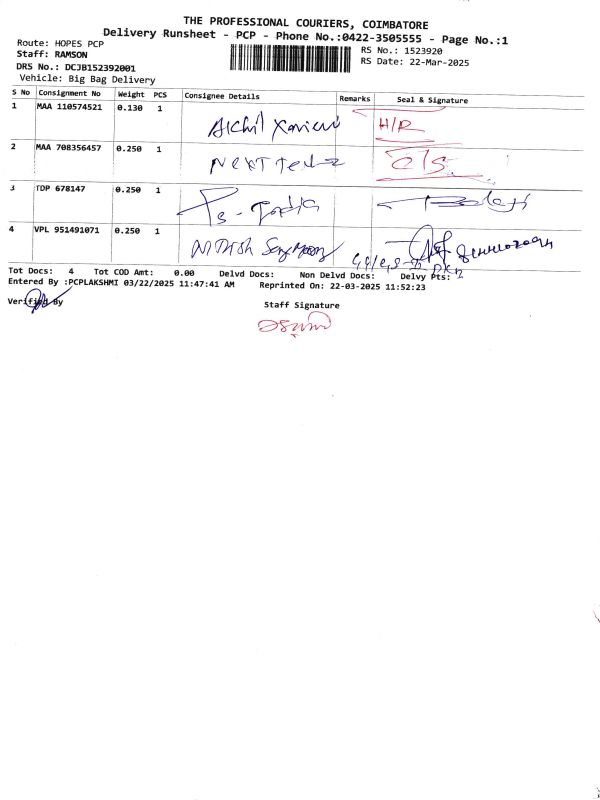 THE PROFESSIONAL COURIERS, COIMBATORE
Delivery Runsheet - PCP - Phone No.:0422-3505555 - Page No.:1
Route: HOPES PCP
RS No.: 1523920
Staff: RAMSON
RS Date: 22-Mar-2025
DRS No.: DCJB152392001
Vehicle: Big Bag Delivery
S No Consignment No Weight PCS Consignee Details Remarks Seal & Signature
1 MAA 110574521 0.130 1 H/R
2 MAA 708356457 0.250 1 C/S
3 TDP 678147 0.250 1
4 VPL 951491071 0.250 1
Tot Docs: 4 Tot COD Amt: 0.00 Delvd Docs: Non Delvd Docs: Delvy Pts:
Entered By :PCPLAKSHMI 03/22/2025 11:47:41 AM Reprinted On: 22-03-2025 11:52:23
Verified By
Staff Signature